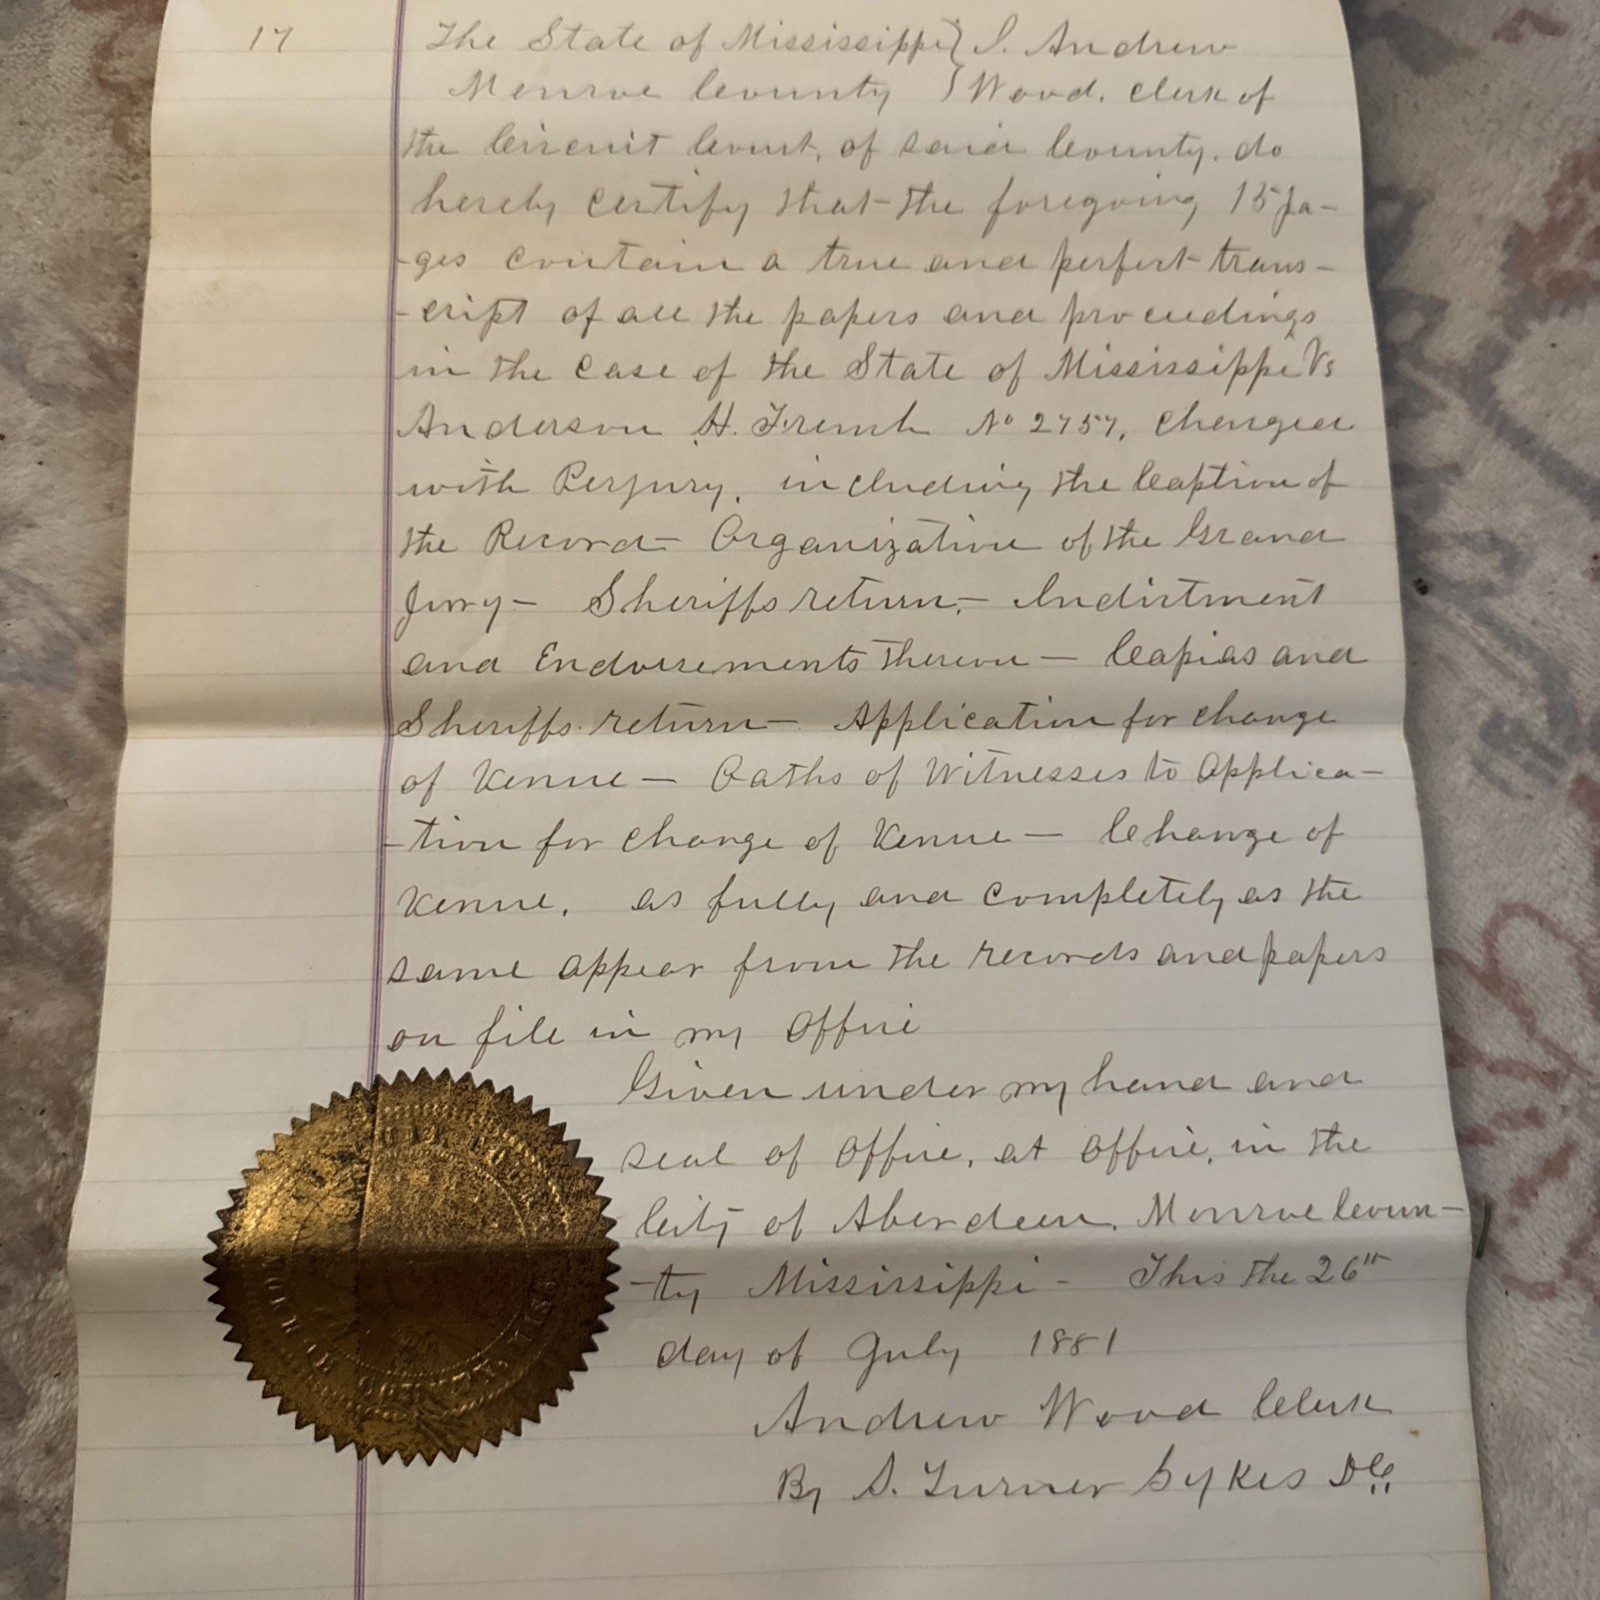 17
The State of Mississippi } I. Andrew
Monroe County } Wood, Clerk of
the Circuit Court, of said County, do
hereby certify that the foregoing 15 pa-
-ges contain a true and perfect trans-
-cript of all the papers and proceedings
in the case of the State of Mississippi Vs
Anderson H. French No 2757, Charged
with Perjury, including the Caption of
the Record — Organization of the Grand
Jury — Sheriffs return, — Indictment
and Endorsements thereon — Capias and
Sheriffs return — Application for change
of Venue — Oaths of Witnesses to Applica-
-tion for change of Venue — Change of
Venue, as fully and completely as the
same appear from the records and papers
on file in my Office
Given under my hand and
seal of Office, at Office, in the
City of Aberdeen, Monroe Coun-
-ty Mississippi - This the 26th
day of July 1881
Andrew Wood Clerk
By S. Turner Sykes D.C.